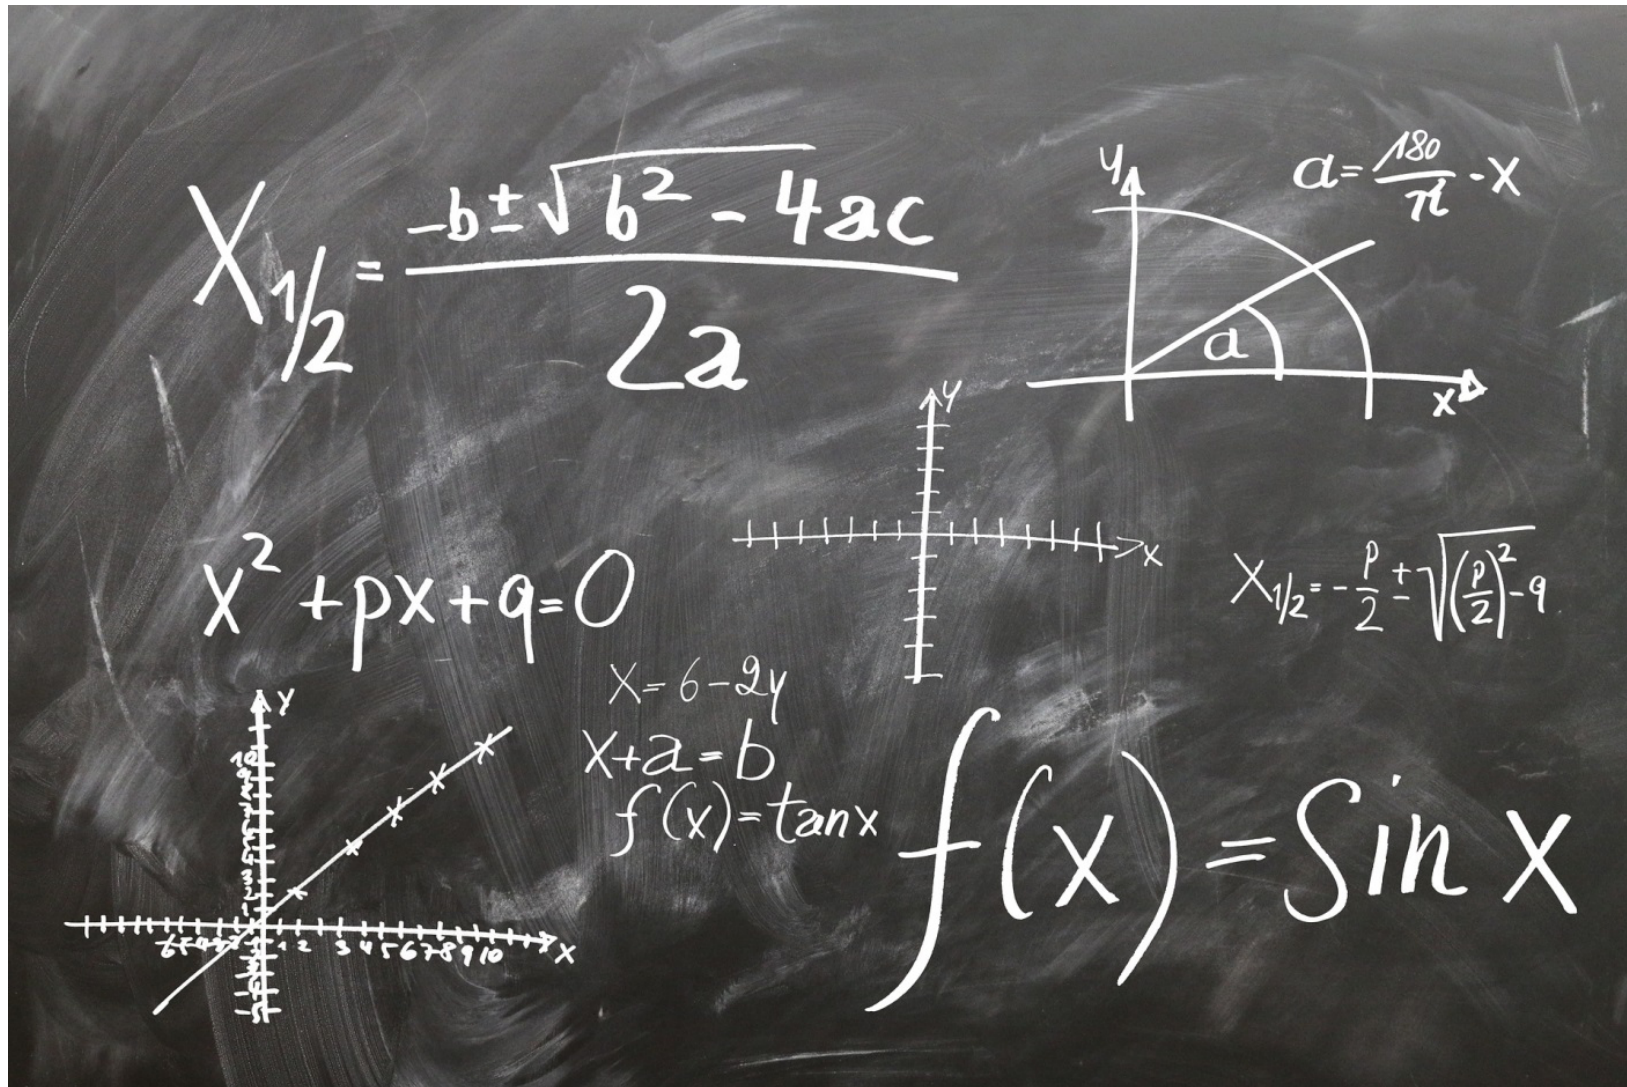 X1/2 = -b ± √b² - 4ac / 2a
y
a = 180/π - x
a
x
y
x
x² + px + q = 0
X1/2 = - p/2 ± √(p/2)² - q
x = 6 - 2y
x + a = b
f(x) = tan x
f(x) = Sin x
y
10
1 2 3 4 5 6 7 8 9 10 x